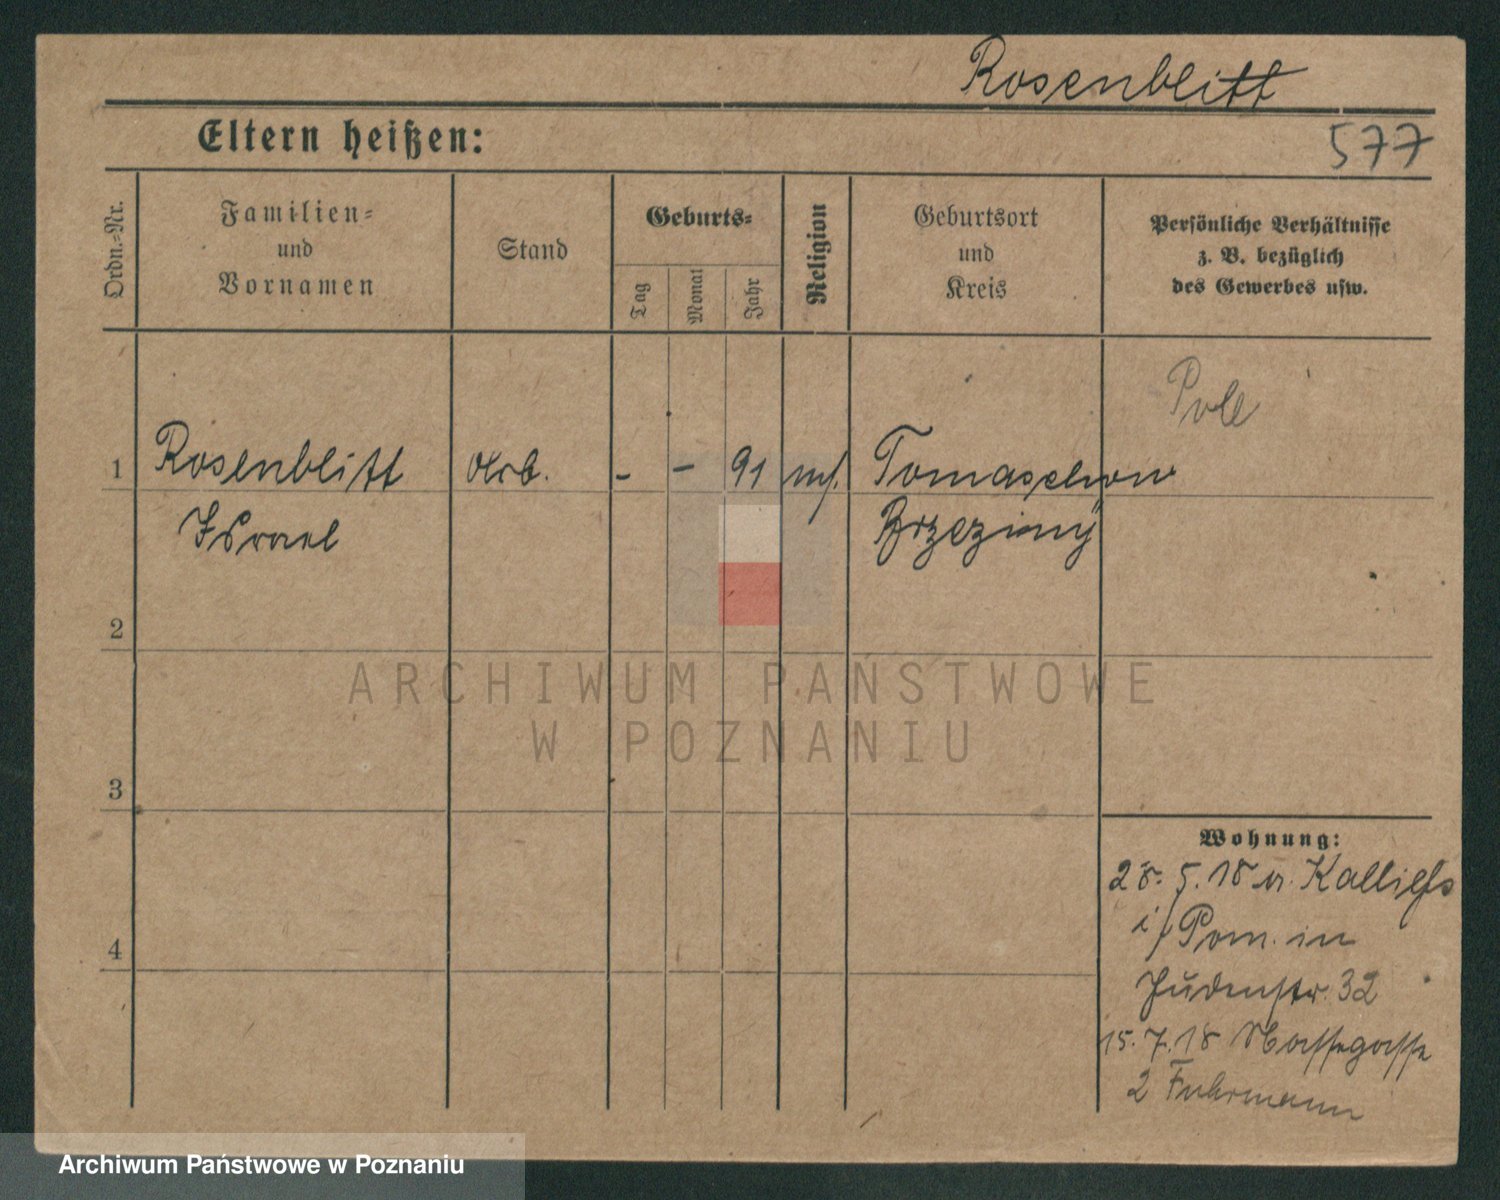 Rosenblitt
Eltern heißen:
577
Ordn.=Nr.
Familien=
und
Vornamen
Stand
Geburts=
Tag
Monat
Jahr
Religion
Geburtsort
und
Kreis
Persönliche Verhältnisse
z. B. bezüglich
des Gewerbes usw.
Pole
1 Rosenblitt Arb. - - 91 mos. Tomaschow
Israel Brzeziny
2
3
4
Wohnung:
28. 5. 18 v. Kallies
i/Pom. in
Judenstr. 32
15. 7. 18 Wassergasse
2 Fuhrmann
ARCHIWUM PAŃSTWOWE
W POZNANIU
Archiwum Państwowe w Poznaniu